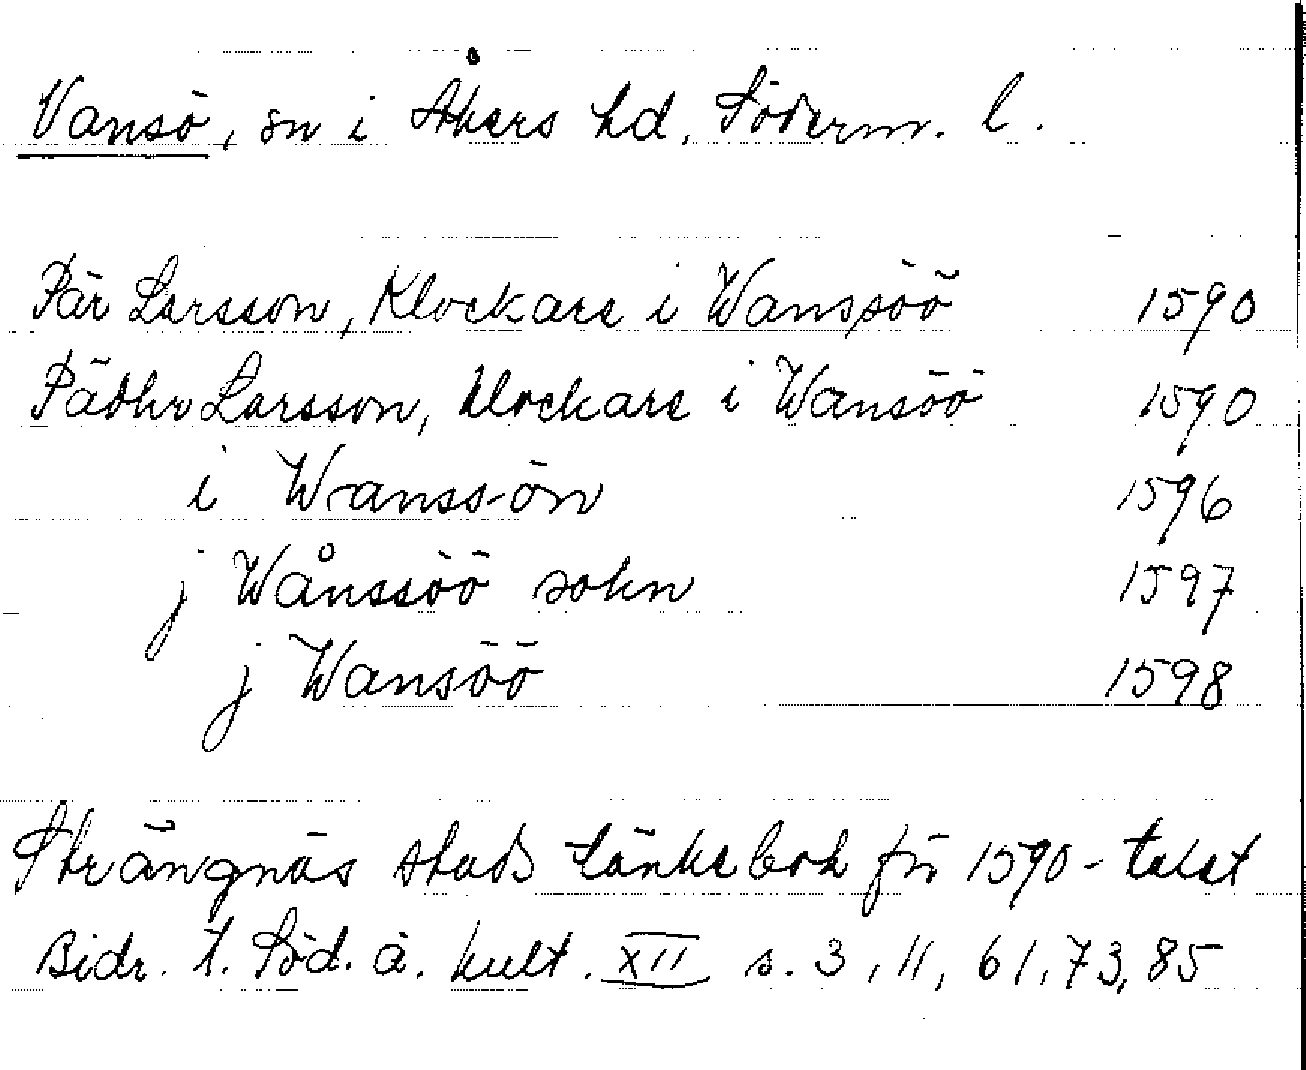 Vansö, sn i Åkers hd, Söderm. l.
Pär Larsson, Klockare i Wanssöö 1590
Pädhr Larsson, klockare i Wansöö 1590
i Wanssön 1596
j Wånssöö sokn 1597
j Wansöö 1598
Strängnäs stads tänkebok för 1590-talet
Bidr. t. Söd. ä. kult. XII s. 3, 11, 61, 73, 85